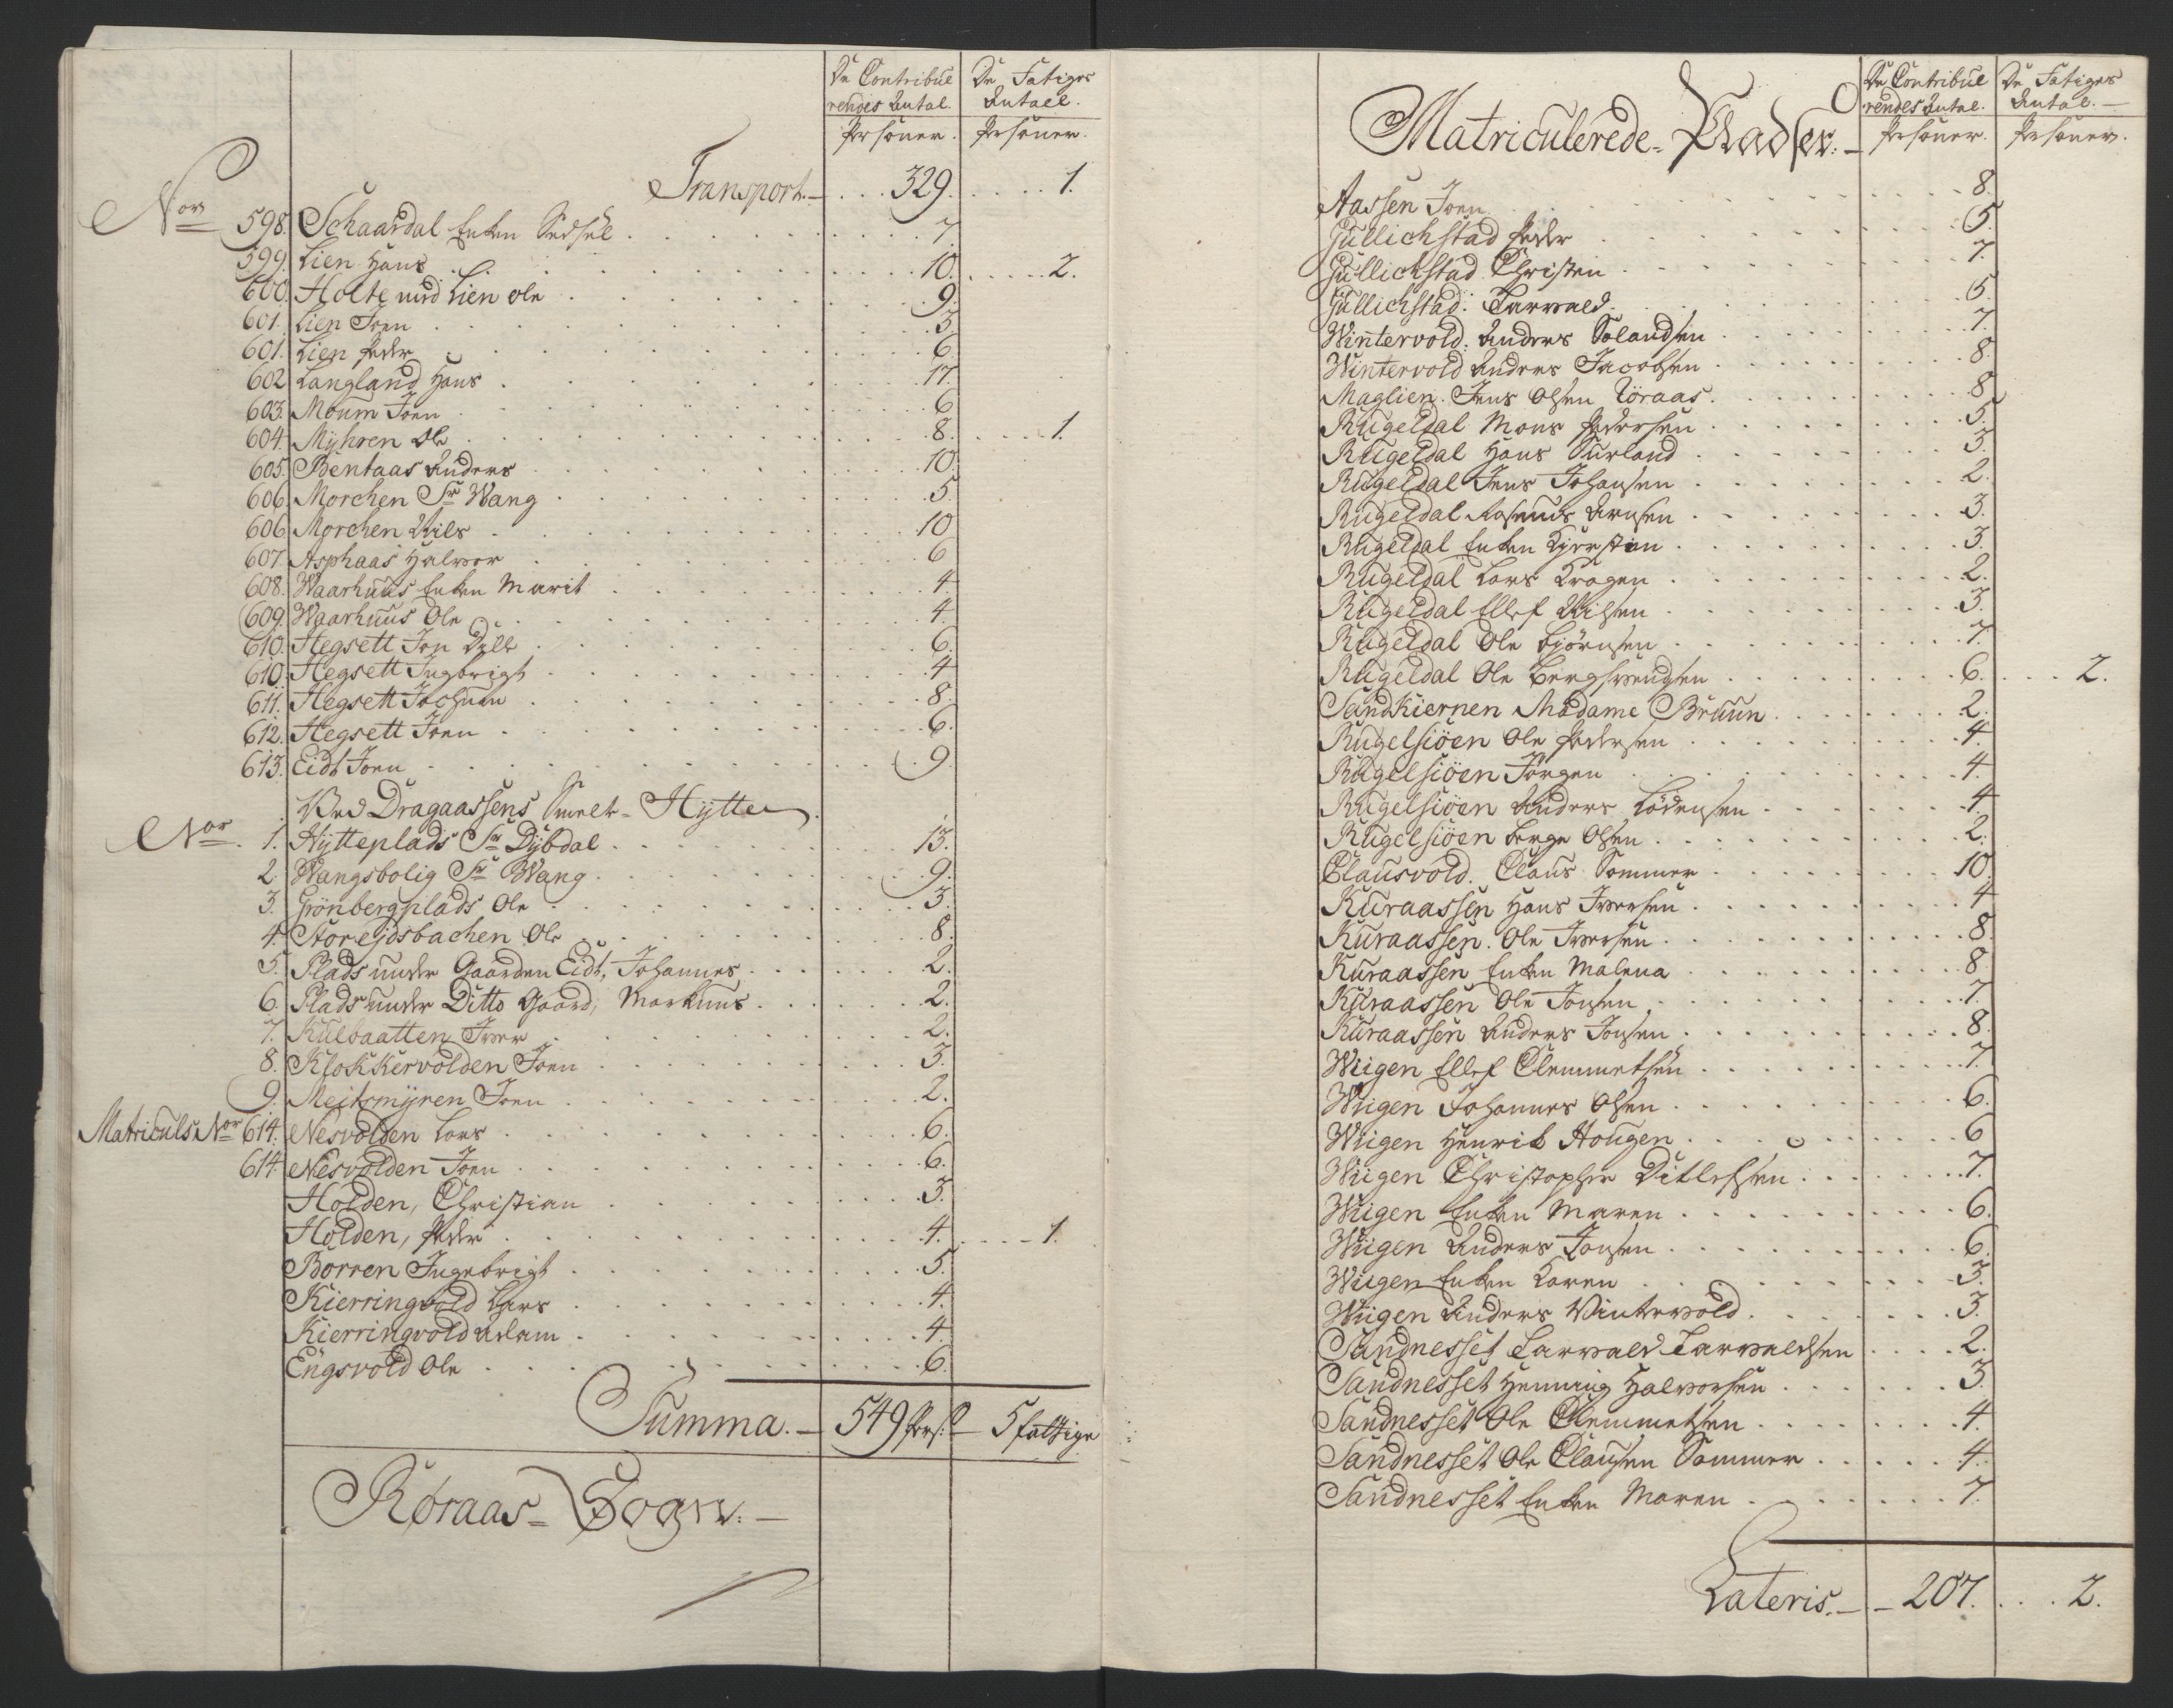 De Contribue
rendes Antal
Persohner.
De Fatiges
Antall.
Persohner.
Transport.— . . 329. . . . . 1.
Nor 598. Schaardal Enken Sedsel . . . 7.
599. Lien Hans . . . 10. . . . 2.
600. Holte med Lien Ole . . . 9.
601. Lien Joen . . . 3.
601. Lien Peder . . . 6.
602 Langland Hans . . . 17.
603. Moum Joen . . . 6.
604. Myhren Ole . . . 8. . . . 1.
605. Bentaas Anders . . . 10.
606. Morchen Sr Wang . . . 5.
606. Morchen Nils . . . 10
607. Asphaas Halvor . . . 6
608. Waarhuus Enken Marit . . . 4.
609. Waarhuus Ole . . . 4.
610. Hegsett Jon . . . 6.
610. Hegsett Ingbrigt . . . 4
611. Hegsett Jochum . . . 8.
612. Hegsett Joen . . . 6.
613. Eidt Joen . . . 9.
Ved Dragaassens Smelt-Hytte
Nor. 1. Hytteplads Sr Dybdal . . . 13.
2. Wangsbolig Sr Wang . . . 9.
3. Grönbergplads Ole . . . 3.
4. Storejdsbachen Ole . . . 8.
5. Plads under Gaarden Eidt, Johannes . . . 2.
6. Plads under Ditto Gaard, Markuus . . . 2.
7. Kulbaatten Iver . . . 2.
8. Klokkervolden Joen . . . 3.
9. Meitsmyren Joen . . . 2.
Matriculs Nor 614. Nesvolden Lars . . . 6.
614. Nesvolden Joen . . . 6.
Holden, Christian . . . 3.
Holden, Peder . . . 4. . . . 1.
Borren Ingebrigt . . . 5.
Kierringvold Lars . . . 4.
Kierringvold Adam . . . 4.
Engsvold Ole . . . 6.
Summa.— 549 Pers: — 5 fattige
Røraas-Sogn.—
De Contribue
rendes Antal.
Persohner.
De Fatiges
Antal.—
Persohner.
Matriculerede-Pladser.—
Aassen Joen . . . 8.
Gullichstad Peder . . . 5.
Gullichstad Christen . . . 7.
Gullichstad: Tarvald . . . 5.
Wintervold: Anders Olandsen . . . 7.
Wintervold Anders Jacobsen . . . 8.
Maglien. Jens Olsen Töraas . . . 8
Rugeldal Mons Pedersen . . . 5.
Rugeldal Hans Surland . . . 3.
Rugeldal Jens Johansen . . . 2.
Rugeldal Rasmus Arnsen . . . 3.
Rugeldal Enken Kjerstien . . . 3.
Rugeldal Lars Kragen . . . 2.
Rugeldal Ellef Nilsen . . . 3.
Rugeldal Ole Björnsen . . . 7.
Rugeldal Ole Bergsvendsen . . . 6. . . . 2.
Sandkiernen Madame Bruun . . . 2.
Rugelsiöen Ole Pedersen . . . 4.
Rugelsiöen Jörgen . . . 4.
Rugelsiöen Anders Lödensen . . . 4
Rugelsiöen Berge Olsen . . . 2.
Clausvold. Claus Sommer . . . 10.
Kuraassen Hans Iversen . . . 4
Kuraassen. Ole Iversen . . . 8.
Kuraassen Enken Malena . . . 8
Kuraassen Ole Jonsen . . . 7.
Kuraassen Anders Jonsen . . . 8.
Wiigen Ellef Clemmetsen . . . 7.
Wiigen Johannes Olsen . . . 6.
Wiigen Henrik Hougen . . . 6
Wiigen Christopher Ditlefsen . . . 7.
Wiigen Enken Maren . . . 6.
Wiigen Anders Jonsen . . . 6.
Wiigen Enken Karen . . . 3.
Wiigen Anders Vintervold . . . 3.
Sandnesset Tarvald Tarvaldsen . . . 2.
Sandnesset Henning Halvorsen . . . 3.
Sandnesset Ole Clemmetsen . . . 4.
Sandnesset Ole Clausen Sommer . . . 4.
Sandnesset Enken Maren . . . 7.
Lateris.— — 207. . . . 2.